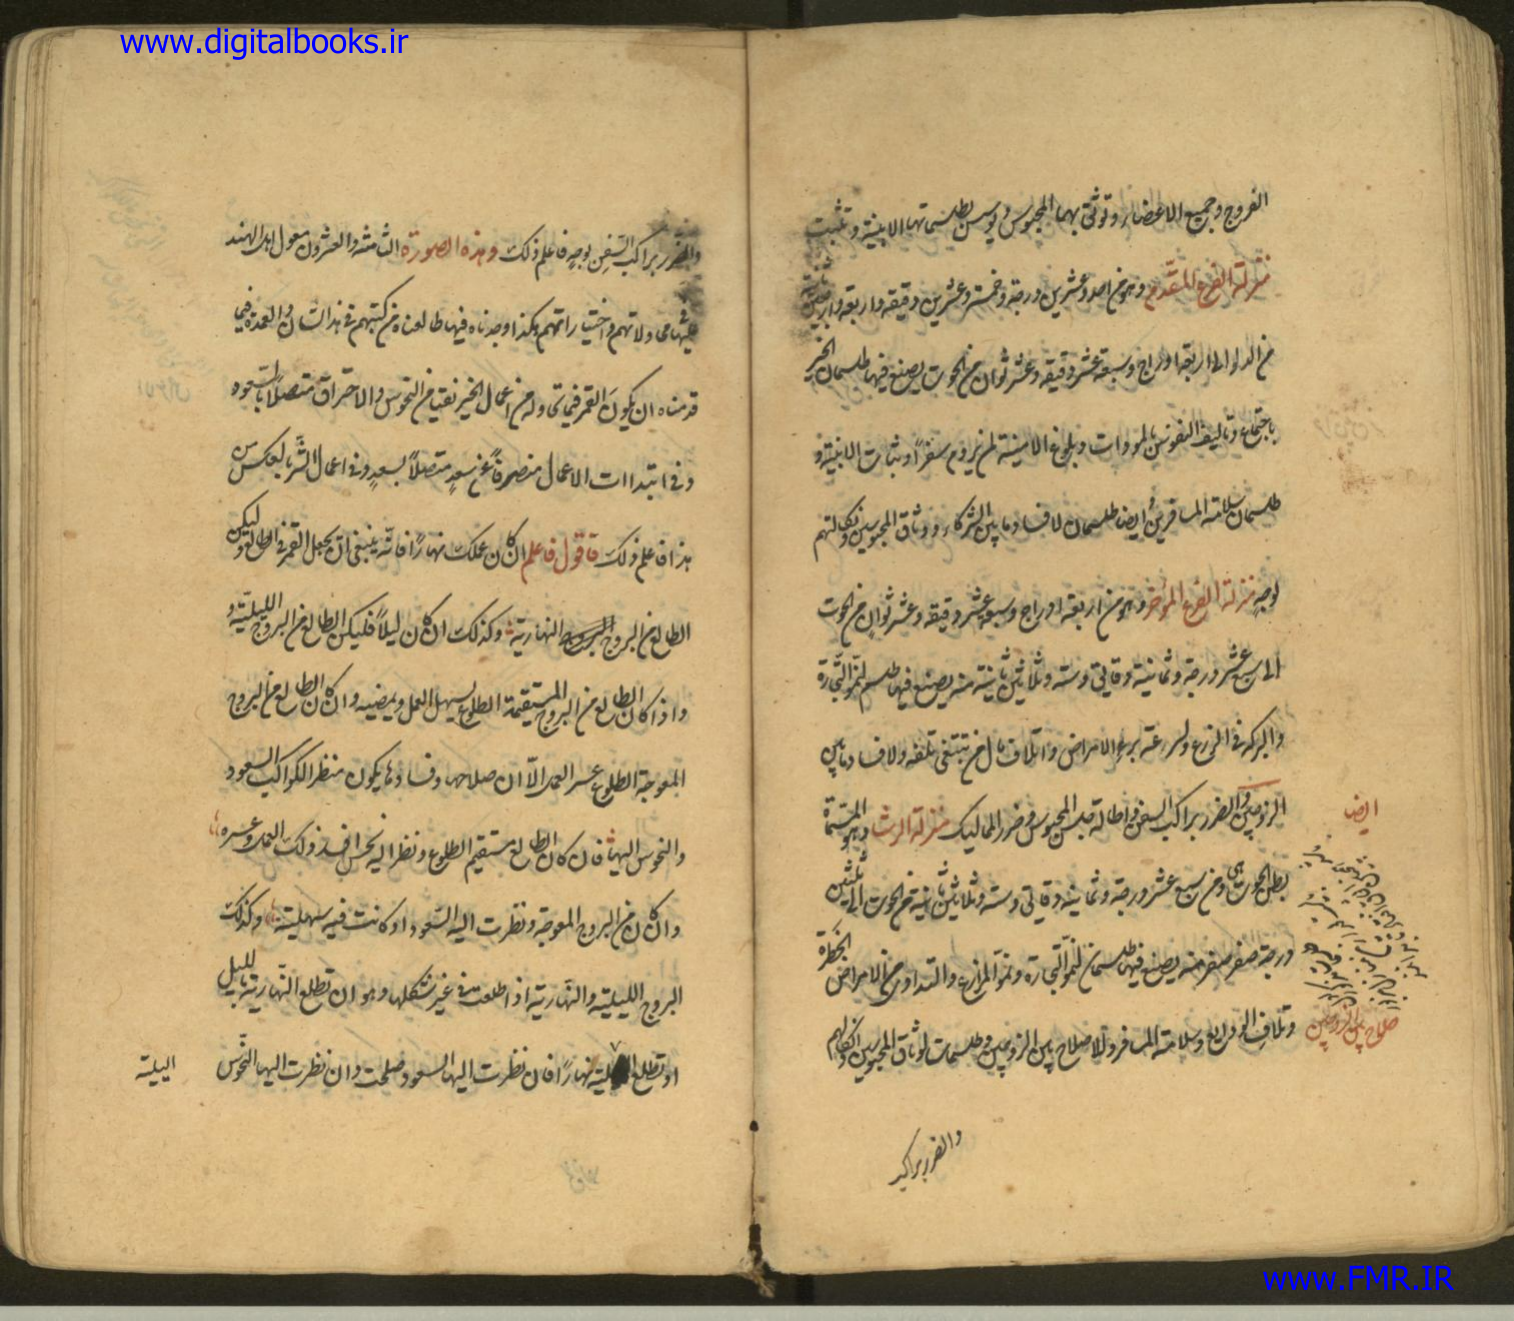 www.digitalbooks.ir
الفروج وجميع الاعضاء وتوثق بهما المحبوس ويوسس بطلسماتها الابنية وتثبت
منزلة الفرغ المقدم وهو من احد وعشرين درجة وخمسة وعشرين دقيقة واربعة واربعين ثانية
من الدلو الى اربعة ادراج وسبعة عشر دقيقة وعشر ثوان من الحوت يصنع فيها طلسمان الخير
باجتماع وتاليف النفوس بالمودات وبلوغ الامنية لمن يروم سفرًا وثبات الابنية و
طلسمان سلامة المسافرين أيضا طلسمان لافساد ما بين الشركاء ووثاق المحبوسين ونكالتهم
لوجه منزلة الفرغ المؤخر وهو من اربعة ادراج وسبعة عشر دقيقة وعشر ثوانٍ من الحوت
الى سبع عشر درجة وثمانية دقايق وستة وثلاثين ثانية منه يصنع فيها طلسم لنمو التجارة
والبركة في الزرع ولسرعة برء الامراض واتلاف مال من تبتغي تلفه ولافساد ما بين
الزوجين والضرر براكب السفن واطالة حبس المحبوس وضرر المماليك منزلة الرشا وهو المسماة
بطن الحوت هي ومن سبع عشر درجة وثمانية دقايق وستة وثلاثين ثانية من الحوت الى ثلثين
درجة صفر صفر منه يصنع فيها طلسمان لنمو التجارة ونمو المزارع والتداوي من الامراض الخطرة
وتلاف الودايع وسلامة المسافر ولاصلاح بين الزوجين وطلسمات لوثاق المحبوسين انكالهم
ايضا
صلاح بين الزوجين
والضرر براكب
والضرر براكب السفن لوجهٍ فاعلم ذلك وهذه الصورة الثامنة والعشرون معول اهل الهند
عليها في محاولاتهم واختياراتهم وهكذا وجدناه فيما طالعناه من كتبهم في هذا الشان والعمدة فيما
قدمناه ان يكون القمر فيما تحاوله من اعمال الخير نقيا من النحوس والاحتراق متصلًا بالسعود
وفي ابتداات الاعمال منصرفًا عن سعدٍ متصلًا بسعدٍ وفي اعمال الشر بالعكس من
هذا فاعلم ذلك فاقول فاعلم ان كان عملك نهارًا فانه ينبغي ان يجعل القمر في الطالع وليكن
الطالع من البروج النهارية وكذلك ان كان ليلًا فليكن الطالع من البروج الليلية و
واذا كان الطالع من البروج المستقيمة الطلوع يسهل العمل ويمضيه وان كان الطالع من البروج
المعوجة الطلوع عسر العمل الا ان صلاحها وفسادها يكون من نظر الكواكب السعود
والنحوس اليها فان كان الطالع مستقيم الطلوع ونظر اليه نحس افسد ذلك العمل وعسره
وان كان من البروج المعوجة ونظرت اليه السعود او كانت فيه سهلته وكذلك
البروج الليلية والنهارية اذا طلعت في غير شكلها وهو ان تطلع النهارية بالليل
او تطلع نهارًا فان نظرت اليها السعود صلحت وان نظرت اليها النحوس
الليلية
www.FMR.IR